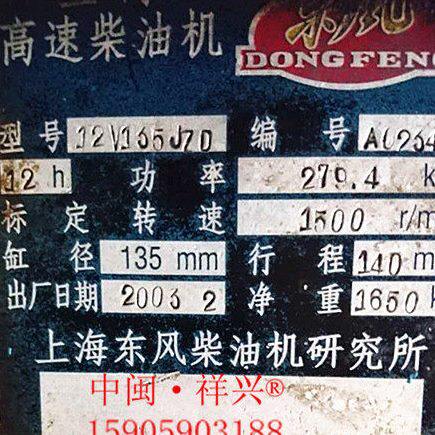 高速柴油机
东风
DONGFENG
型号 12V135JZD 编号 A0234
12h 功率 279.4 k
标定转速 1500 r/m
缸径 135 mm 行程 140 m
出厂日期 2003 2 净重 1650
上海东风柴油机研究所
中闽·祥兴®
15905903188